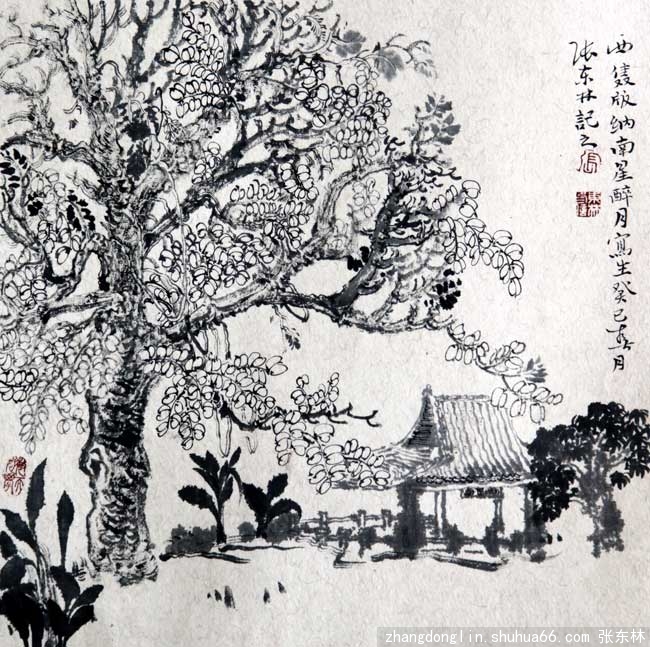 西双版纳南星醉月寫生癸巳春月
张东林記之
zhangdonglin.shuhua66.com 张东林